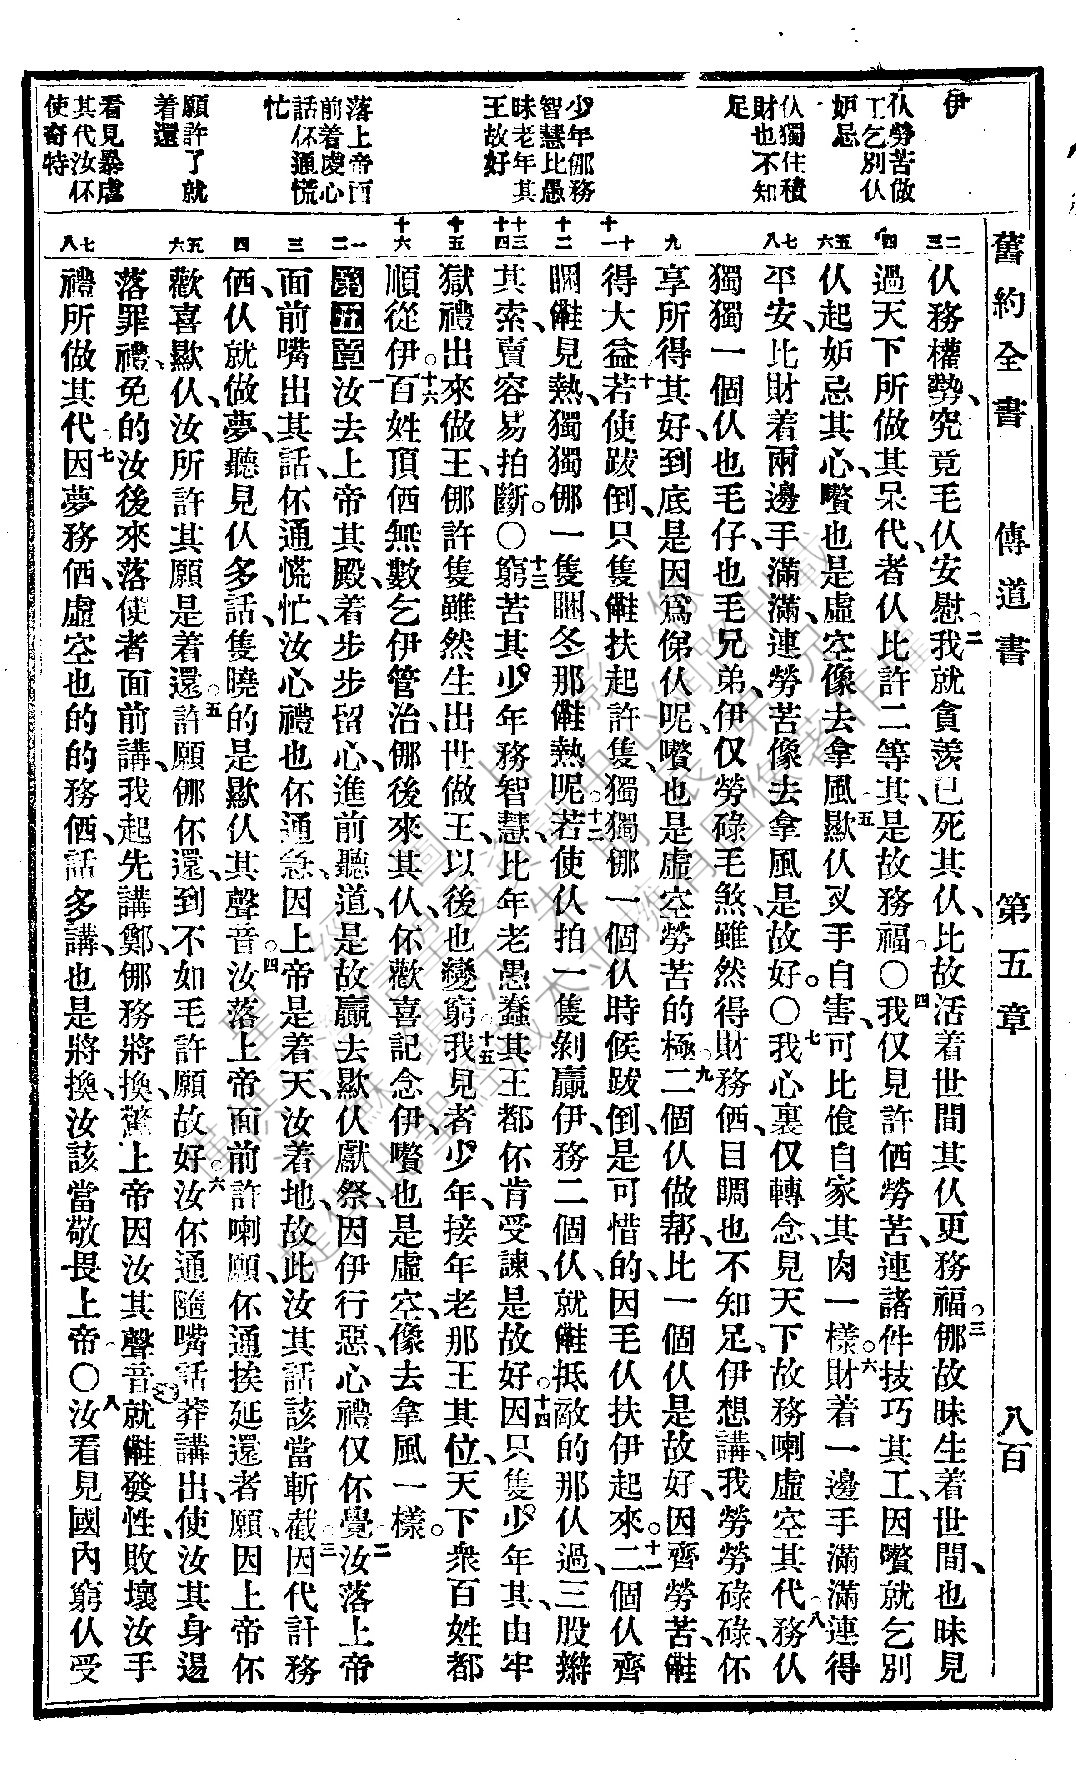 舊約全書 傳道書 第五章 八百
伊
仈勞苦做
工乞別仈
妒忌
仈獨住積
財也不知
足
少年㑚務
智慧比愚
昧老年其
王故好
落上帝面
前着虔心
話伓通慌
忙
願許了就
着還
看見暴虐
其代汝伓
使奇特
仈務權勢、究竟毛仈安慰、二我就貪羨已死其仈、比故活着世間其仈更務福。三㑚故昧生着世間、也昧見
過天下所做其呆代者、仈比許二等其、是故務福。〇四我仅見許㑄勞苦、連諸件技巧其工、因嚽就乞別
仈起妒忌其心、嚽也是虛空、像去拿風。五歟仈叉手自害、可比食自家其肉一樣。六財着一邊手滿滿連得
平安、比財着兩邊手滿滿、連勞苦像去拿風、是故好。〇七我心裏仅轉念、見天下故務喇虛空其代、八務仈
獨獨一個仈、也毛仔、也毛兄弟、伊仅勞碌毛煞、雖然得財務㑄、目睭也不知足、伊想講、我勞勞碌碌、伓
享所得其好、到底是因爲俤仈呢、嚽也是虛空勞苦的極。九二個仈做帮、比一個仈是故好、因齊勞苦、㒉
得大益。十若使跋倒、只隻㒉扶起許隻、獨獨㑚一個仈時候跋倒、是可惜的、因毛仈扶伊起來。十一二個仈齊
睏㒉見熱、獨獨㑚一隻睏、冬那㒉熱呢。十二若使仈拍一隻剝贏伊、務二個仈、就㒉抵敵的、那仈過三股辮
其索、賣容易拍斷。〇十三窮苦其少年務智慧、比年老愚蠢其王都伓肯受諫、是故好。十四因只隻少年其、由牢
獄禮出來做王、㑚許隻雖然生出世做王、以後也變窮。十五我見者少年、接年老那王其位、天下衆百姓都
順從伊。十六百姓頂㑄無數乞伊管治、㑚後來其仈、伓歡喜記念伊、嚽也是虛空、像去拿風一樣。
第五章一汝去上帝其殿、着步步留心、進前聽道、是故贏去歟仈獻祭、因伊行惡、心禮仅伓覺。二汝落上帝
面前嘴出其話、伓通慌忙、汝心禮也伓通急、因上帝是着天、汝着地、故此汝其話該當斬截。三因代計務
㑄、仈就做夢、聽見仈多話、隻曉的是歟仈其聲音。四汝落上帝面前許喇願、伓通挨延還者願、因上帝伓
歡喜歟仈、汝所許其願是着還。五許願㑚伓還、到不如毛許願故好。六汝伓通隨嘴話莽講出、使汝其身逿
落罪禮、免的汝後來落使者面前講、我起先講鄭、㑚務將換、驚上帝因汝其聲音就㒉發性、敗壞汝手
禮所做其代。七因夢務㑄、虛空也的的務㑄、話多講、也是將換、汝該當敬畏上帝。〇八汝看見國內窮仈受